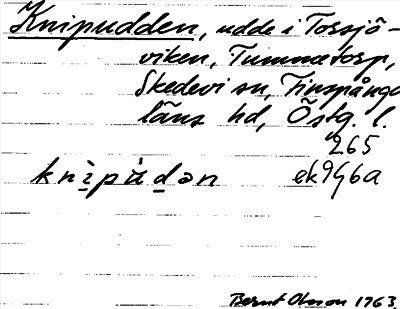 Knipudden, udde i Tossjö-
viken, Tummetorp,
Skedevi sn, Finspånga
läns hd, Östg. l.
265
knìpùdən ek 9G6a
Bernt Olsson 1963.